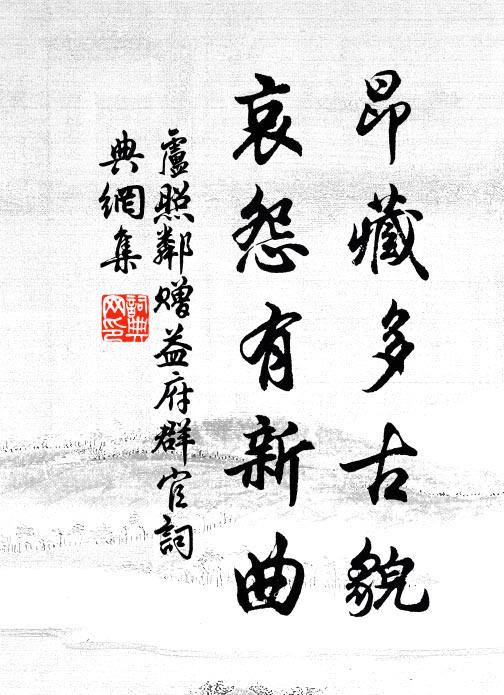 昂藏多古貌
哀怨有新曲
盧照鄰贈益府群官詞
典網集
詞典网印